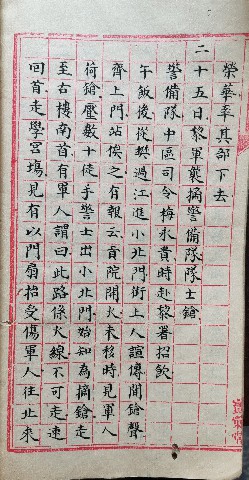 榮華率其部下去
二十五日黎軍襲摘警備隊隊士鎗
警備隊中區司令梅永貴時赴黎署招飲
午飯後從樊過江進小北門街上人諠傳聞鎗聲
齊上門站俟之有報云貢院開火未移時見軍人
荷鎗壓數十徒手警士出小北門始知為摘鎗走
至古樓南首有軍人謂曰此路係火線不可走速
回首走學宮塲見有以門扇抬受傷軍人往北來